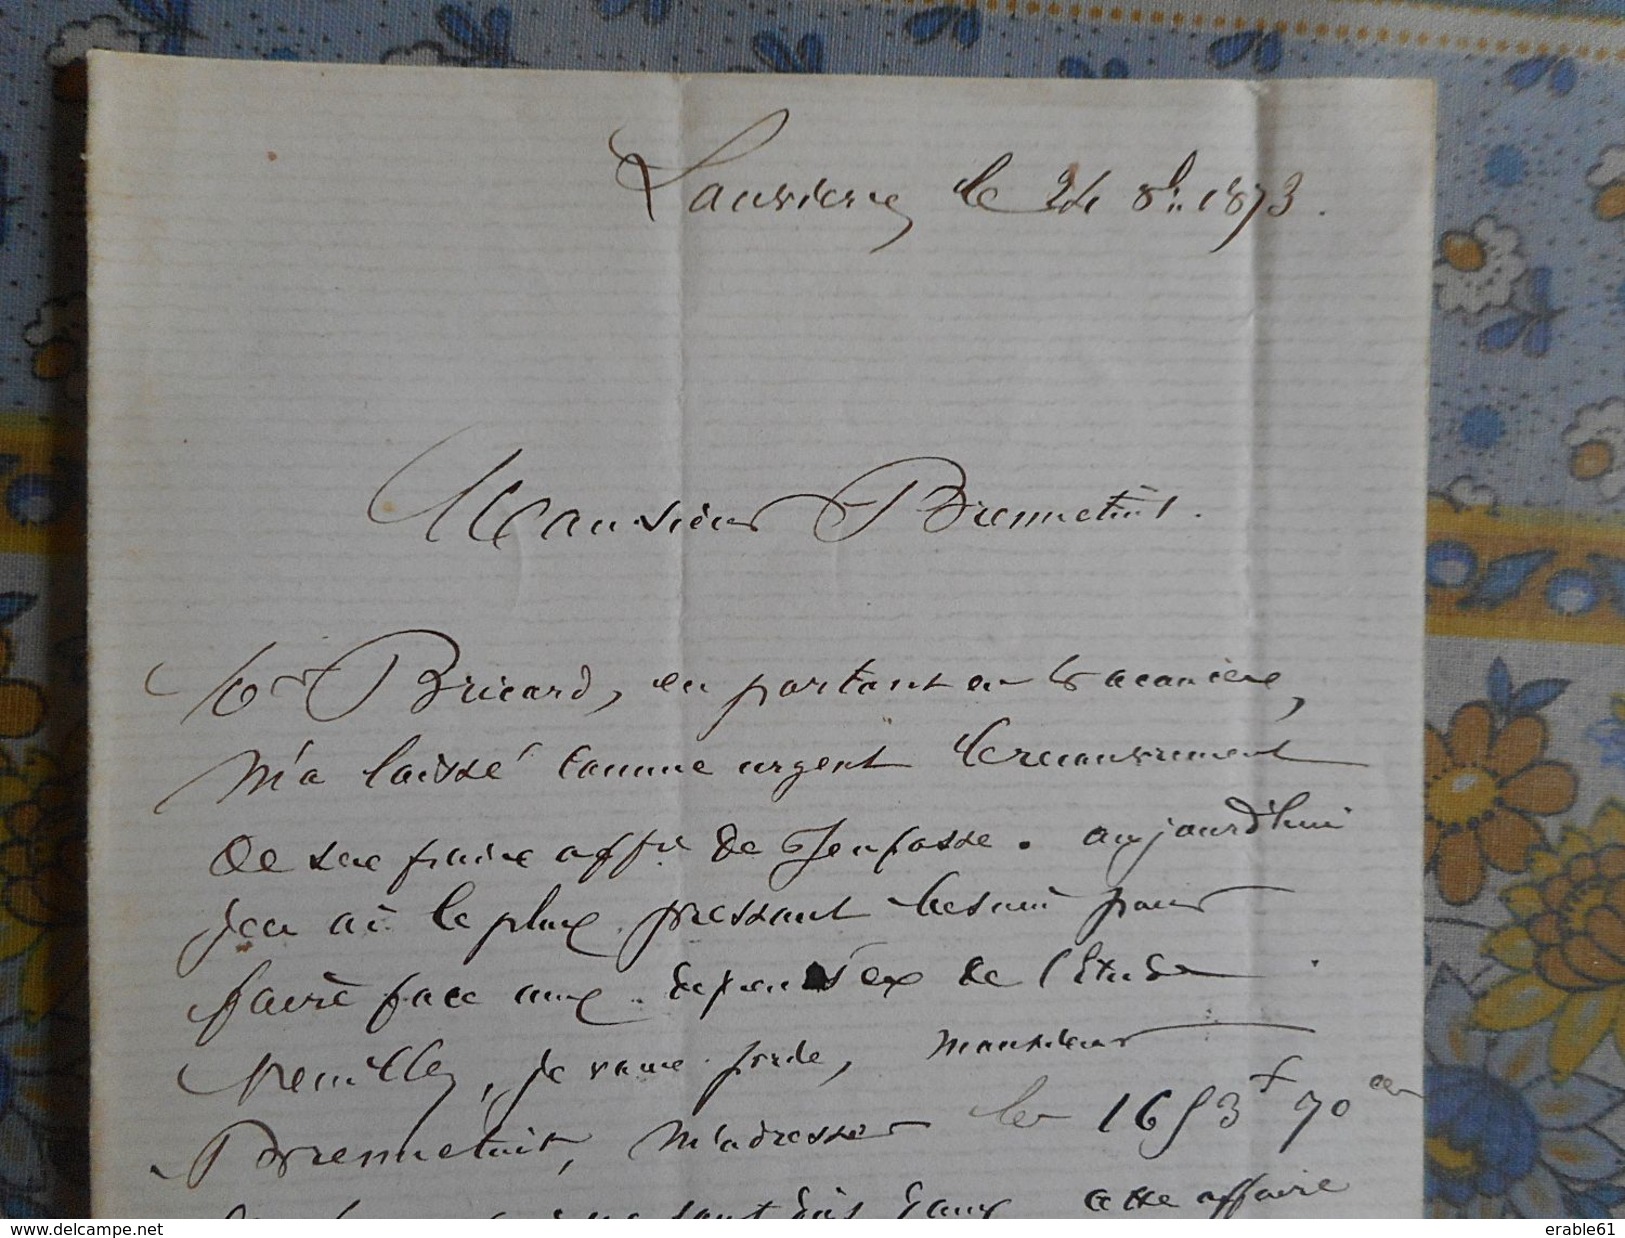 Louviers, le 24 8bre 1873.
Monsieur Brennetuit.
Mr Bricard, en partant en vacances,
m'a laissé comme urgent le recouvrement
de ses frais aff. de Jeufosse. aujourd'hui
j'en ai le plus pressant besoin pour
faire face aux dépenses de l'Etude.
Veuillez, je vous prie, Monsieur
Brennetuit, m'adresser les 1653f 70ces
sont dûs dans cette affaire
delcampe.net
erable61